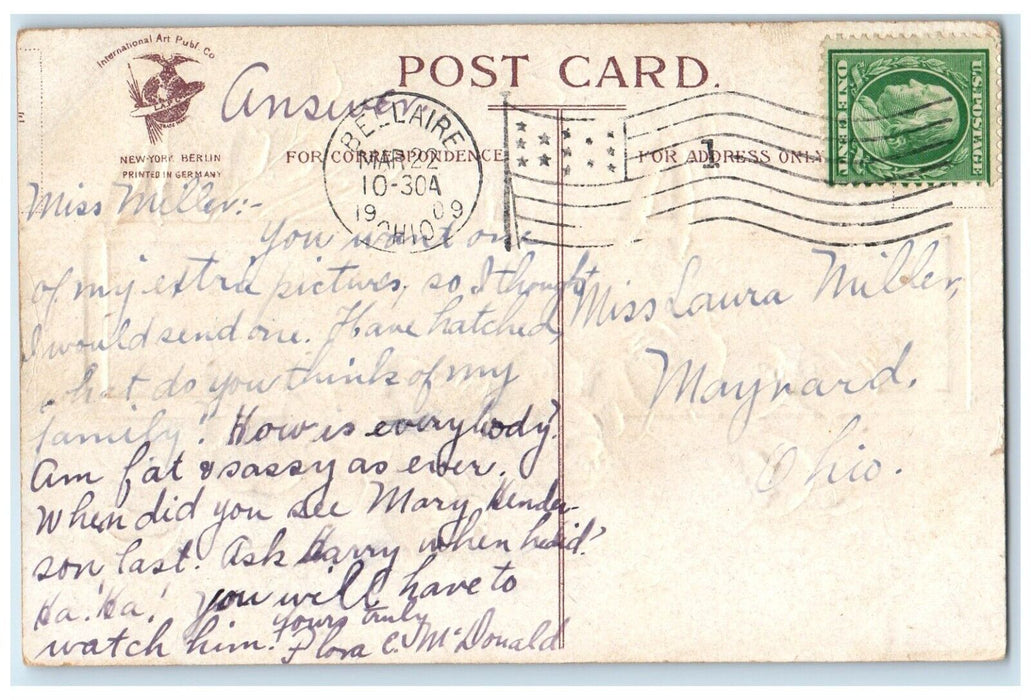 International Art Publ. Co
POST CARD.
Answer
NEW-YORK BERLIN
PRINTED IN GERMANY
FOR CORRESPONDENCE
FOR ADDRESS ONLY
BELLAIRE
MAR 22
10-30A
1909
OHIO
1
U.S. POSTAGE
Miss Miller:-
You want one
of my extra pictures, so I thought
I would send one. Have hatched,
what do you think of my
family! How is everybody?
Am fat & sassy as ever.
When did you see Mary Hender-
son last. Ask Harry when he did?
Ha! Ha! you will have to
watch him!
yours truly
Flora C. McDonald
Miss Laura Miller,
Maynard,
Ohio.